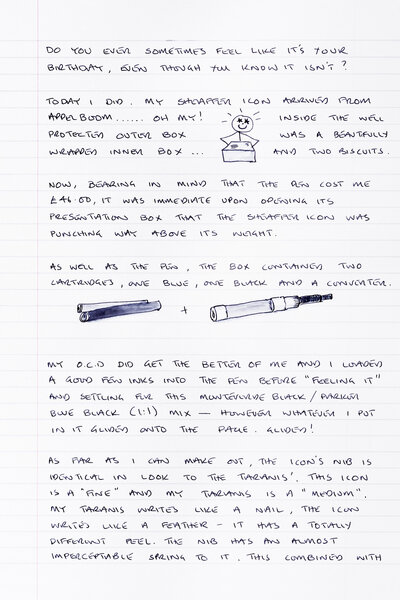 DO YOU EVER SOMETIMES FEEL LIKE IT'S YOUR
BIRTHDAY, EVEN THOUGH YOU KNOW IT ISN'T?
TODAY I DID. MY SHEAFFER ICON ARRIVED FROM
APPELBOOM...... OH MY! INSIDE THE WELL
PROTECTED OUTER BOX WAS A BEAUTIFULLY
WRAPPED INNER BOX ... AND TWO BISCUITS.
NOW, BEARING IN MIND THAT THE PEN COST ME
£46.00, IT WAS IMMEDIATE UPON OPENING ITS
PRESENTATION BOX THAT THE SHEAFFER ICON WAS
PUNCHING WAY ABOVE ITS WEIGHT.
AS WELL AS THE PEN, THE BOX CONTAINED TWO
CARTRIDGES, ONE BLUE, ONE BLACK AND A CONVERTER.
+
MY O.C.D DID GET THE BETTER OF ME AND I LOADED
A GOOD FEW INKS INTO THE PEN BEFORE "FEELING IT"
AND SETTLING FOR THIS MONTEVERDE BLACK/PARKER
BLUE BLACK (1:1) MIX — HOWEVER WHATEVER I PUT
IN IT GLIDED ONTO THE PAGE. GLIDED!
AS FAR AS I CAN MAKE OUT, THE ICON'S NIB IS
IDENTICAL IN LOOK TO THE TARANIS'. THIS ICON
IS A "FINE" AND MY TARANIS IS A "MEDIUM".
MY TARANIS WRITES LIKE A NAIL, THE ICON
WRITES LIKE A FEATHER - IT HAS A TOTALLY
DIFFERENT FEEL. THE NIB HAS AN ALMOST
IMPERCEPTABLE SPRING TO IT. THIS COMBINED WITH